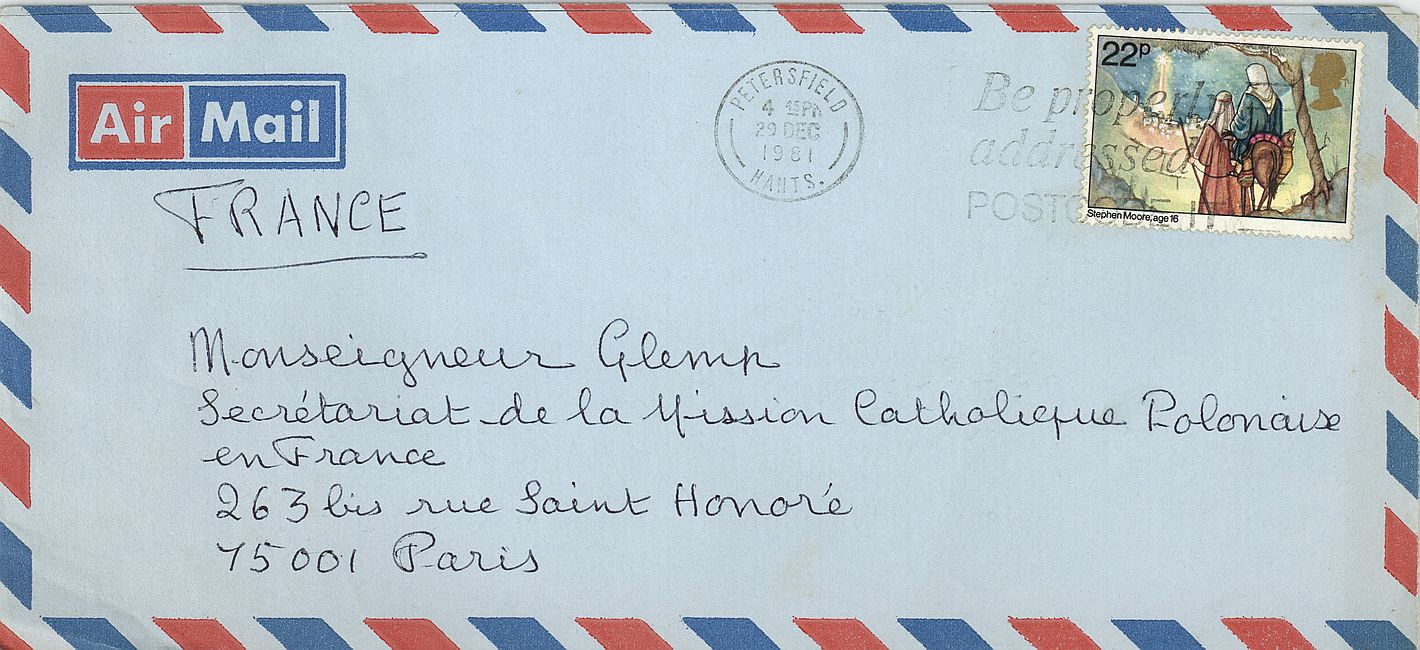 Air Mail
PETERSFIELD
4 45PM
29 DEC
1981
HANTS.
Be properly
addressed
22P
Stephen Moore, age 16
FRANCE
Monseigneur Glemp
Secrétariat de la Mission Catholique Polonaise
en France
263 bis rue Saint Honoré
75001 Paris